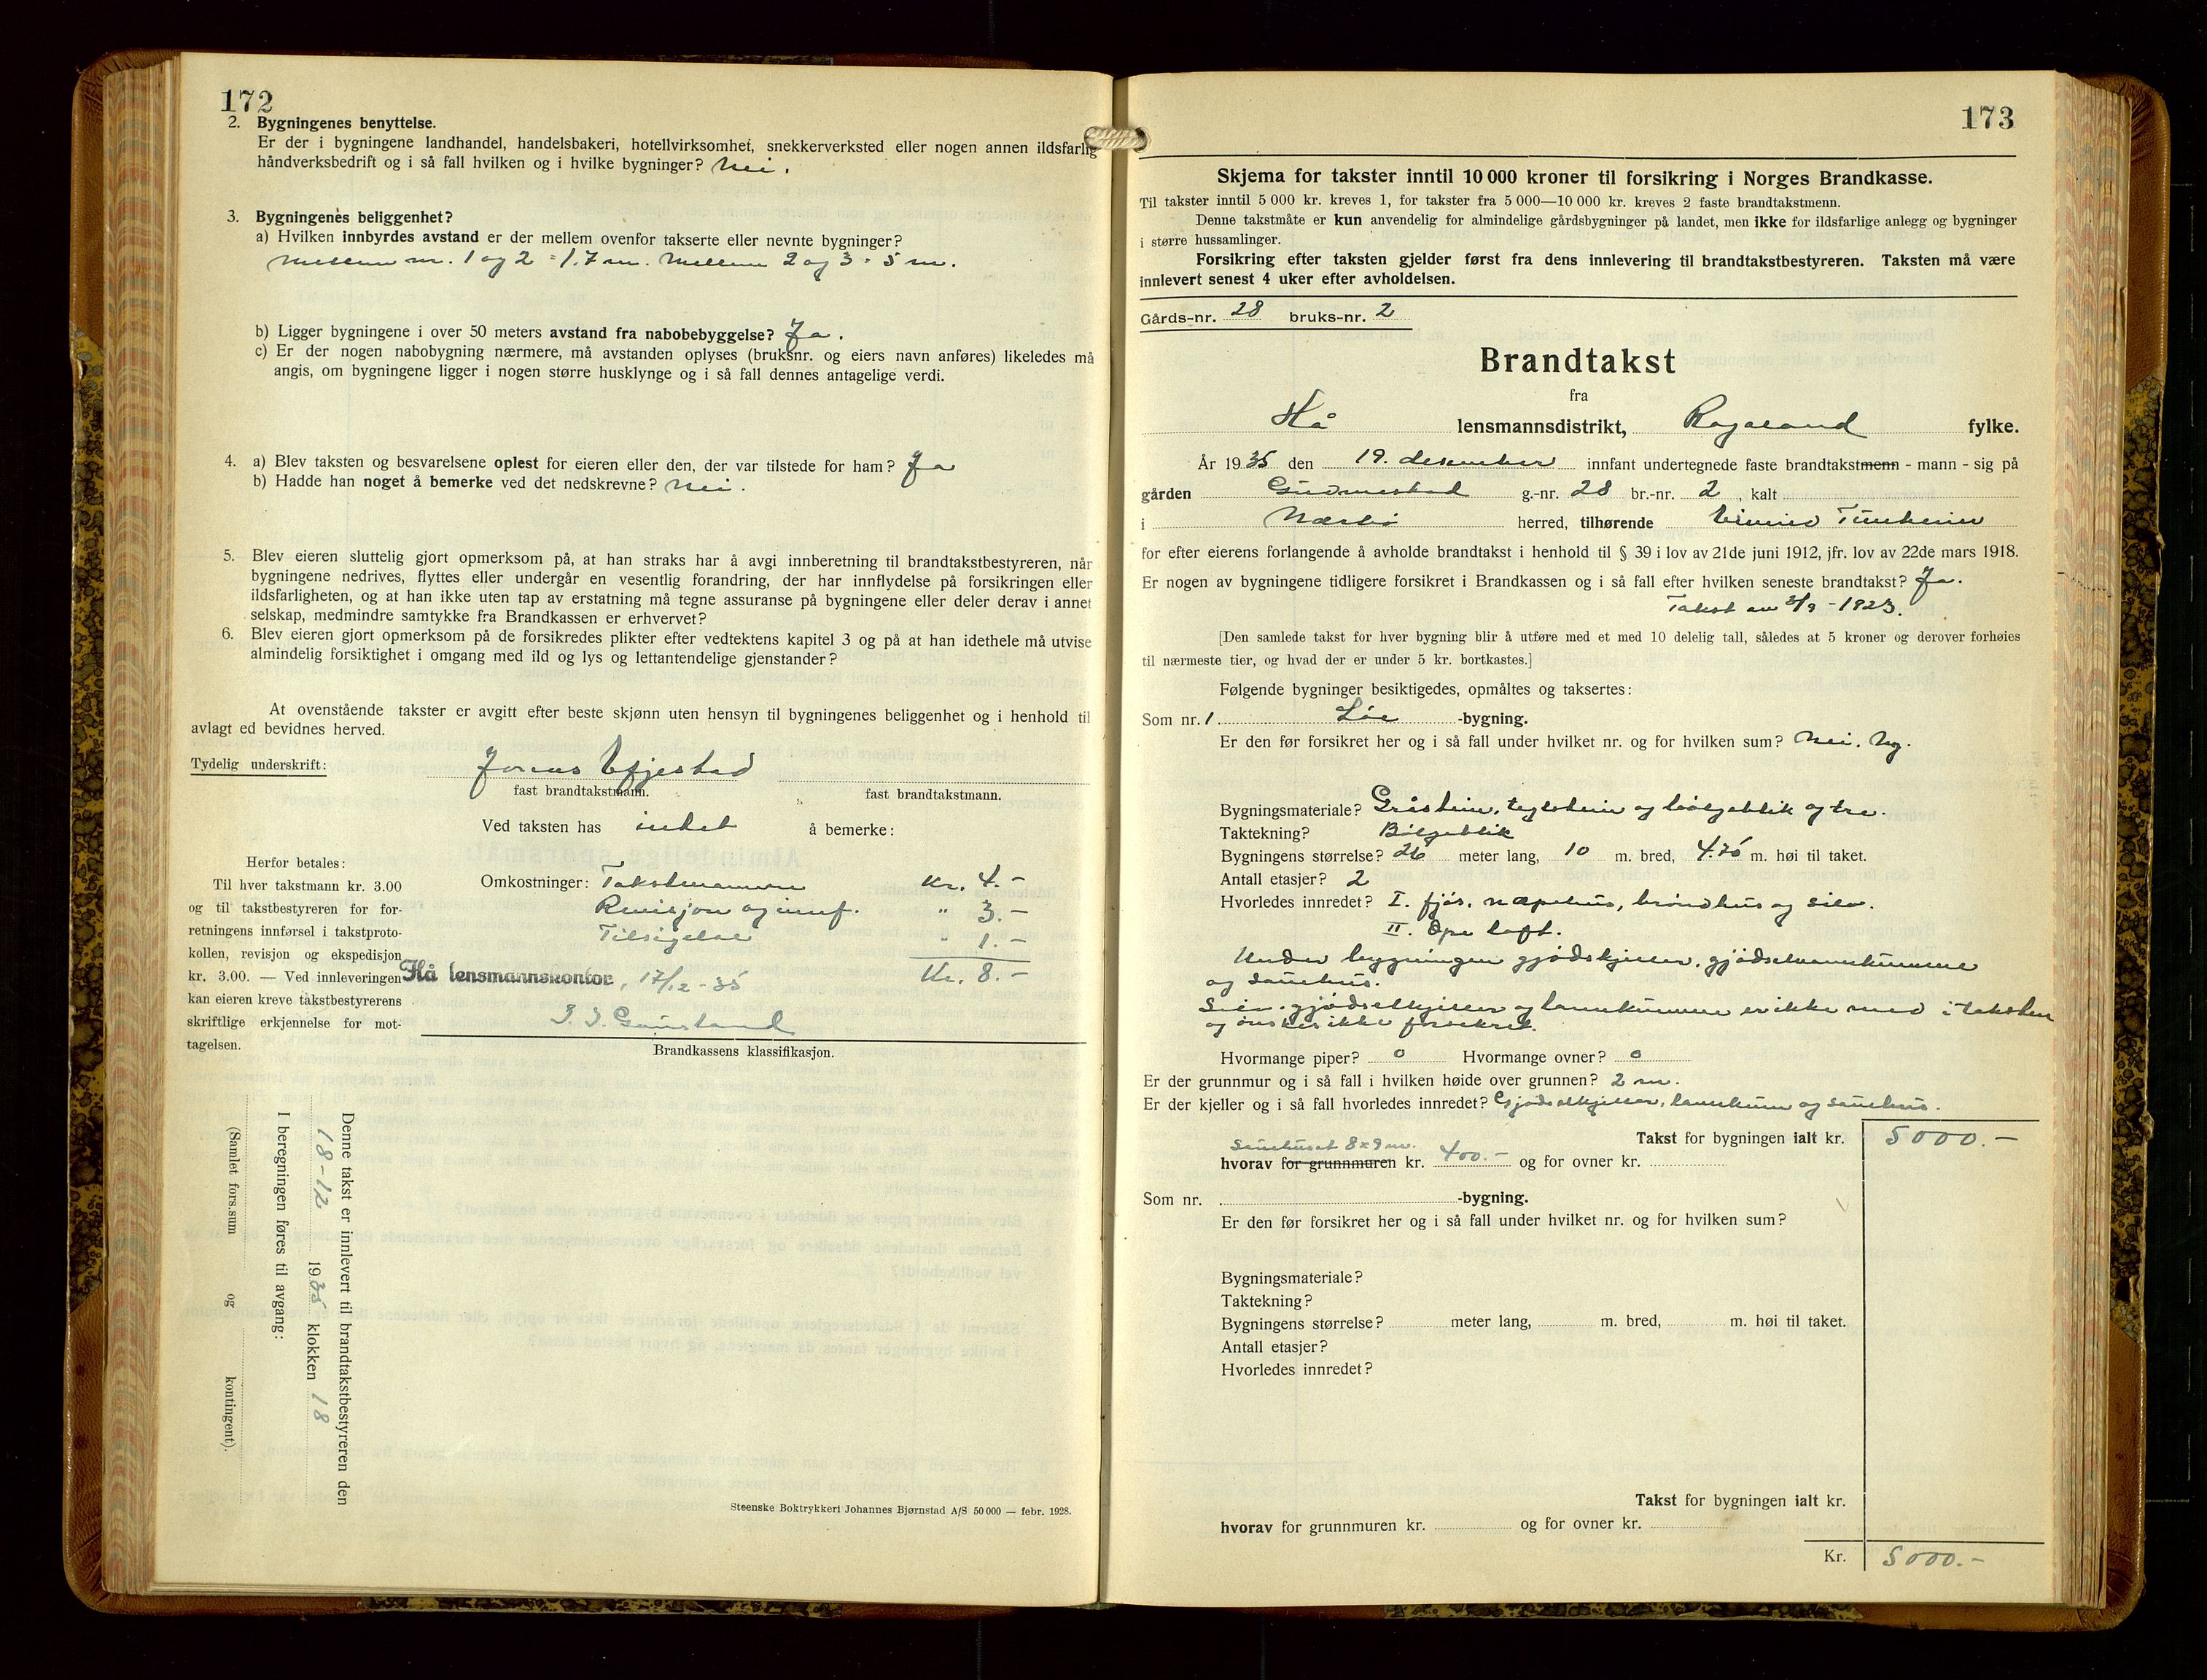 172
2. Bygningenes benyttelse.
Er der i bygningene landhandel, handelsbakeri, hotellvirksomhet, snekkerverksted eller nogen annen ildsfarlig
håndverksbedrift og i så fall hvilken og i hvilke bygninger? Nei.
3. Bygningenes beliggenhet?
a) Hvilken innbyrdes avstand er der mellem ovenfor takserte eller nevnte bygninger?
Mellem nr. 1 og 2 = 1,7 m. Mellem 2 og 3 = 5 m.
b) Ligger bygningene i over 50 meters avstand fra nabobebyggelse? Ja.
c) Er der nogen nabobygning nærmere, må avstanden oplyses (bruksnr. og eiers navn anføres) likeledes må
angis, om bygningene ligger i nogen større husklynge og i så fall dennes antagelige verdi.
4. a) Blev taksten og besvarelsene oplest for eieren eller den, der var tilstede for ham? Ja
b) Hadde han noget å bemerke ved det nedskrevne? Nei.
5. Blev eieren sluttelig gjort opmerksom på, at han straks har å avgi innberetning til brandtakstbestyreren, når
bygningene nedrives, flyttes eller undergår en vesentlig forandring, der har innflydelse på forsikringen eller
ildsfarligheten, og at han ikke uten tap av erstatning må tegne assuranse på bygningene eller deler derav i annet
selskap, medmindre samtykke fra Brandkassen er erhvervet?
6. Blev eieren gjort opmerksom på de forsikredes plikter efter vedtektens kapitel 3 og på at han idethele må utvise
almindelig forsiktighet i omgang med ild og lys og lettantendelige gjenstander?
At ovenstående takster er avgitt efter beste skjønn uten hensyn til bygningenes beliggenhet og i henhold til
avlagt ed bevidnes herved.
Tydelig underskrift: Jonas Efjestad
fast brandtakstmann. fast brandtakstmann.
Ved taksten has intet å bemerke:
Herfor betales:
Til hver takstmann kr. 3.00
og til takstbestyreren for for-
retningens innførsel i takstproto-
kollen, revisjon og ekspedisjon
kr. 3.00. — Ved innleveringen
kan eieren kreve takstbestyrerens
skriftlige erkjennelse for mot-
tagelsen.
Omkostninger: Takstmannen Kr. 4.-
Revisjon og innf. " 3.-
Tilsigelse " 1.-
Kr. 8.-
Hå lensmannskontor, 17/12-35
Brandkassens klassifikasjon.
Denne takst er innlevert til brandtakstbestyreren den
18-12 1935 klokken 18
I beregningen føres til avgang:
(Samlet fors.sum og kontingent).
Steenske Boktrykkeri Johannes Bjørnstad A/S 50 000 — febr. 1928.
173
Skjema for takster inntil 10 000 kroner til forsikring i Norges Brandkasse.
Til takster inntil 5 000 kr. kreves 1, for takster fra 5 000—10 000 kr. kreves 2 faste brandtakstmenn.
Denne takstmåte er kun anvendelig for almindelige gårdsbygninger på landet, men ikke for ildsfarlige anlegg og bygninger
i større hussamlinger.
Forsikring efter taksten gjelder først fra dens innlevering til brandtakstbestyreren. Taksten må være
innlevert senest 4 uker efter avholdelsen.
Gårds-nr. 28 bruks-nr. 2
Brandtakst
fra
Hå lensmannsdistrikt, Rogaland fylke.
År 1935 den 19. desember innfant undertegnede faste brandtakstmenn - mann - sig på
gården Gudmestad g.-nr. 28 br.-nr. 2, kalt
i Nærbø herred, tilhørende Tunheim
for efter eierens forlangende å avholde brandtakst i henhold til § 39 i lov av 21de juni 1912, jfr. lov av 22de mars 1918.
Er nogen av bygningene tidligere forsikret i Brandkassen og i så fall efter hvilken seneste brandtakst? Ja.
Takst av 3/9 - 1923.
[Den samlede takst for hver bygning blir å utføre med et med 10 delelig tall, således at 5 kroner og derover forhøies
til nærmeste tier, og hvad der er under 5 kr. bortkastes.]
Følgende bygninger besiktigedes, opmåltes og taksertes:
Som nr. 1 Løe -bygning.
Er den før forsikret her og i så fall under hvilket nr. og for hvilken sum? Nei. Ny.
Bygningsmateriale? Gråstein, teglstein og bølgeblik og tre.
Taktekning? Bølgeblik
Bygningens størrelse? 26 meter lang, 10 m. bred, 4.75 m. høi til taket.
Antall etasjer? 2
Hvorledes innredet? I. fjøs, næpehus, brøndhus og silo.
II. Ope loft.
Under bygningen gjødskjeller, gjødselvannkumme
og sauehus.
Silo, gjødselkjeller og lannkumme er ikke med i taksten
og ønskes ikke forsikret.
Hvormange piper? 0 Hvormange ovner? 0
Er der grunnmur og i så fall i hvilken høide over grunnen? 2 m.
Er der kjeller og i så fall hvorledes innredet? Gjødselkjeller, lannkum og sauehus.
Takst for bygningen ialt kr. 5000.-
Sauehuset 8x9 m.
hvorav for grunnmuren kr. 400.- og for ovner kr.
Som nr. -bygning.
Er den før forsikret her og i så fall under hvilket nr. og for hvilken sum?
Bygningsmateriale?
Taktekning?
Bygningens størrelse? meter lang, m. bred, m. høi til taket.
Antall etasjer?
Hvorledes innredet?
Takst for bygningen ialt kr.
hvorav for grunnmuren kr. og for ovner kr.
Kr. 5000.-